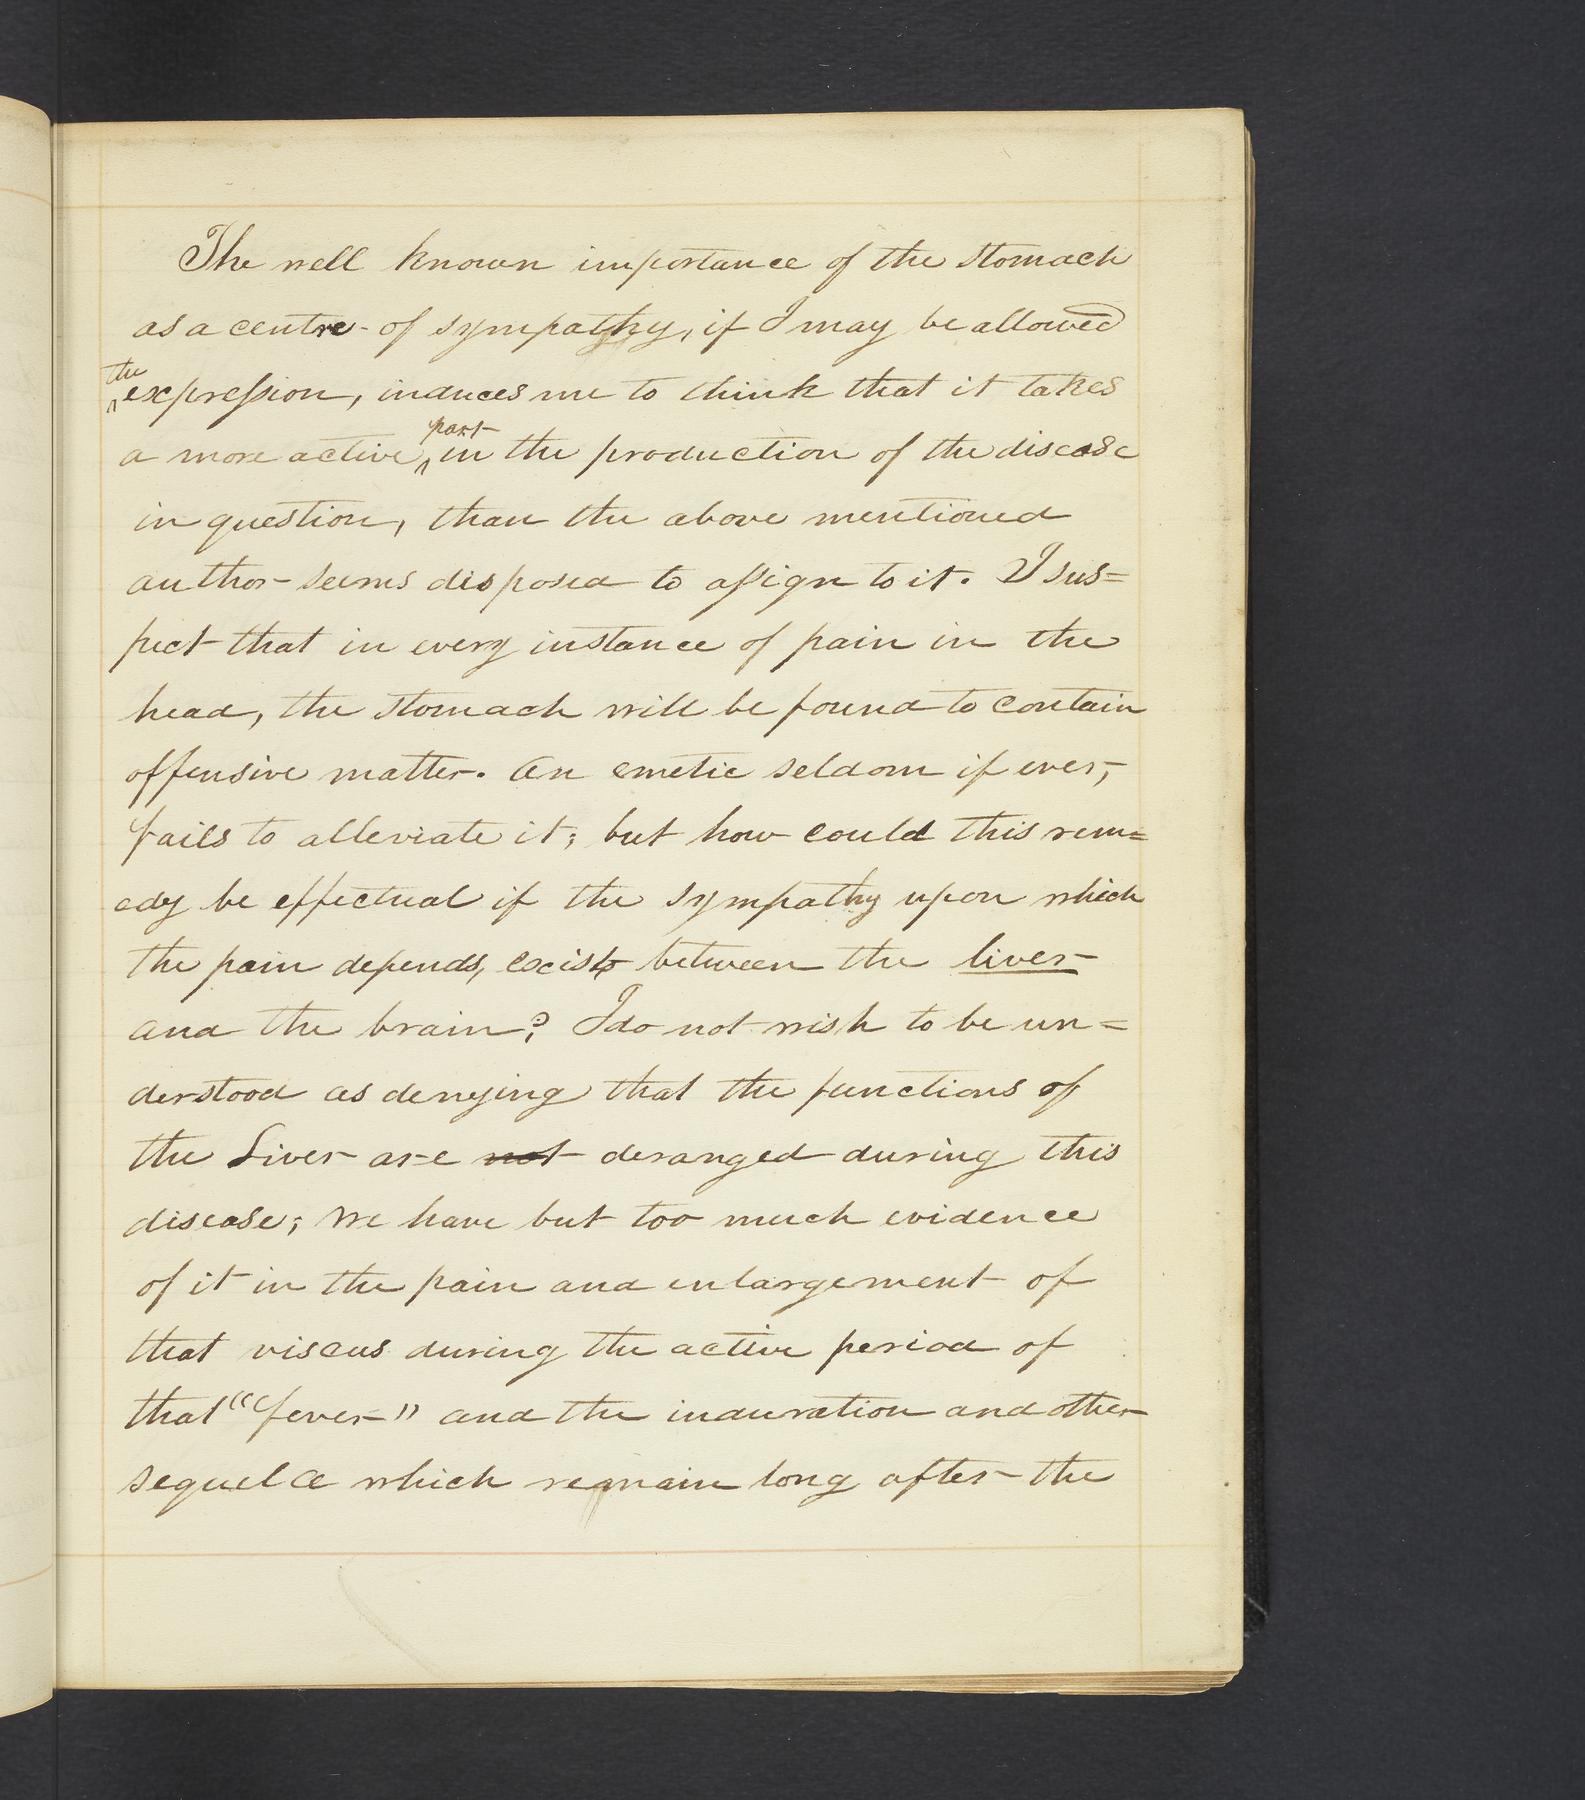 The well known importance of the stomach
as a centre of sympathy, if I may be allowed
the expression, induces me to think that it takes
a more active part in the production of the disease
in question, than the above mentioned
author seems disposed to assign to it. I sus=
pect that in every instance of pain in the
head, the stomach will be found to contain
offensive matter. An emetic seldom if ever,
fails to alleviate it; but how could this rem=
edy be effectual if the sympathy upon which
the pain depends, exists between the liver
and the brain? I do not wish to be un=
derstood as denying that the functions of
the Liver are not deranged during this
disease; we have but too much evidence
of it in the pain and enlargement of
that viscus during the active period of
that "fever" and the induration and other
sequelæ which remain long after the